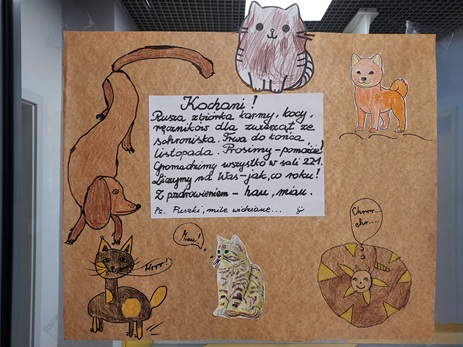 Kochani!
Rusza zbiórka karmy, kocy,
ręczników dla zwierząt ze
schroniska. Trwa do końca
listopada. Prosimy - pomóżcie!
Gromadzimy wszystko w sali 221.
Liczymy na Was - jak, co roku!
Z pozdrowieniem - hau, miau.
Ps. Puszki, mile widziane...
Miau!
Mrrr!
Chrrr...